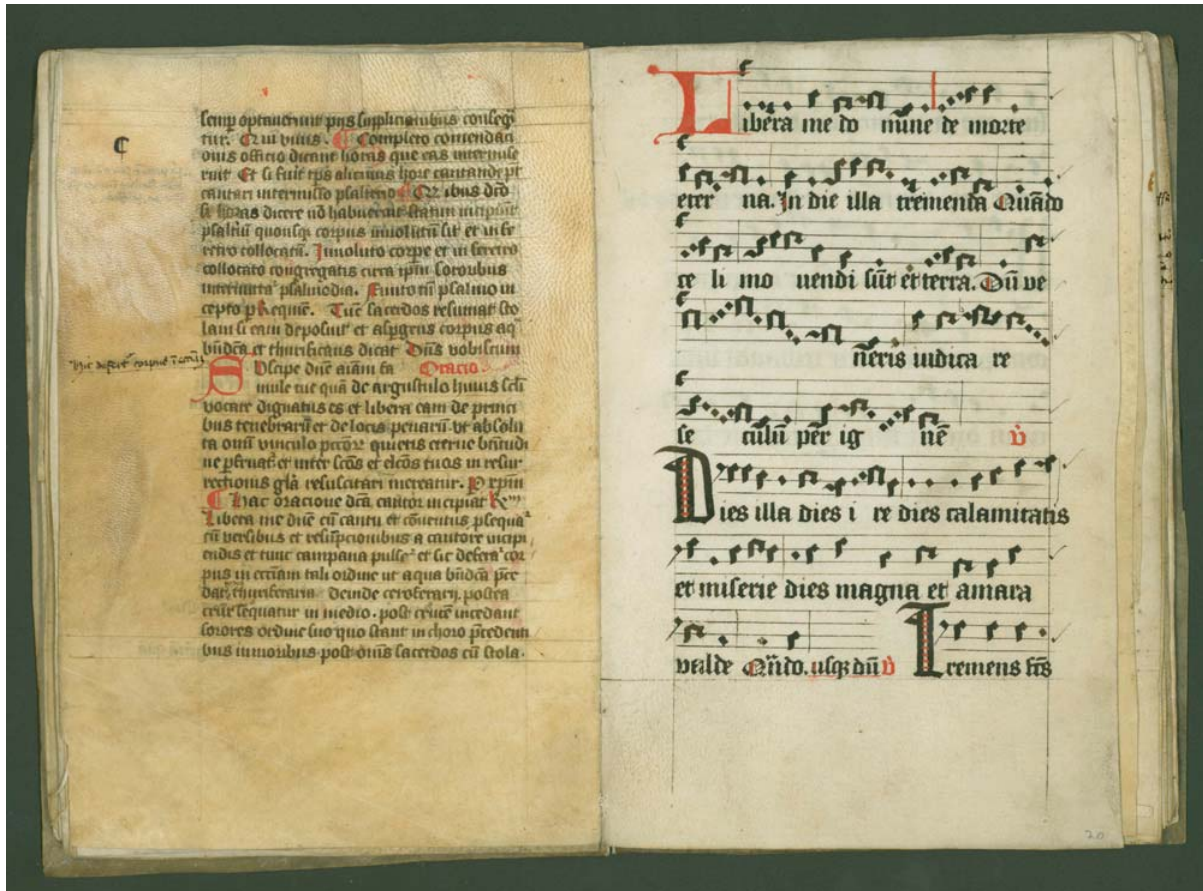 semp optauerunt pijs supplicationibus conseq
tur. Qui viuis. Completo comendaci
onis officio dicant horas que eas intermise
runt Et si fuit tps alicuius hore cantande pt
cantari intermisso psalterio
si horas dicere nō habuerint statim incipiant
psaltiū quousq corpus inuolutū sit et in fe
retro collocatū. Inuoluto corpe et in feretro
collocato congregatis circa ipm sororibus
intermittat psalmodia. Finito tn psalmo in
cepto p Requiem. Tūc sacerdos resumat sto
lam si eam deposuit et aspgens corpus aq
bndca et thurificans dicat Dns vobiscum
Suscipe dne aiam fa Oracio
mule tue quā de ergastulo huius scli
vocare dignatus es et libera eam de princi
bus tenebrarū et de locis penarū vt absolu
ta oniū vinculo pctor quietis eterne bntudi
ne pfruat et inter scos et elcos tuos in resur
rectionis gla resuscitari mereatur. P xpm
Hac oracione dca cantor incipiat R
Libera me dne cū cantu et cōuentus psequat
cū versibus et resūpcionibus a cantore incipi
endis et tunc campana pulset et sic deferat cor
pus in ecciam tali ordine ut aqua bndca pce
dat, thuriferaria deinde ceroferarij. postea
crux sequatur in medio. post crucē incedant
sorores ordine suo quo stant in choro pcedenti
bus iunioribus post oms sacerdos cū stola.
Libera me do mine de morte
eter na. In die illa tremenda Quādo
ce li mo uendi sūt et terra. Dū ve
neris iudica re
se culū per ig nē V
Dies illa dies i re dies calamitatis
et miserie dies magna et amara
valde Qn̄do. usq dū V Tremens fcs
20